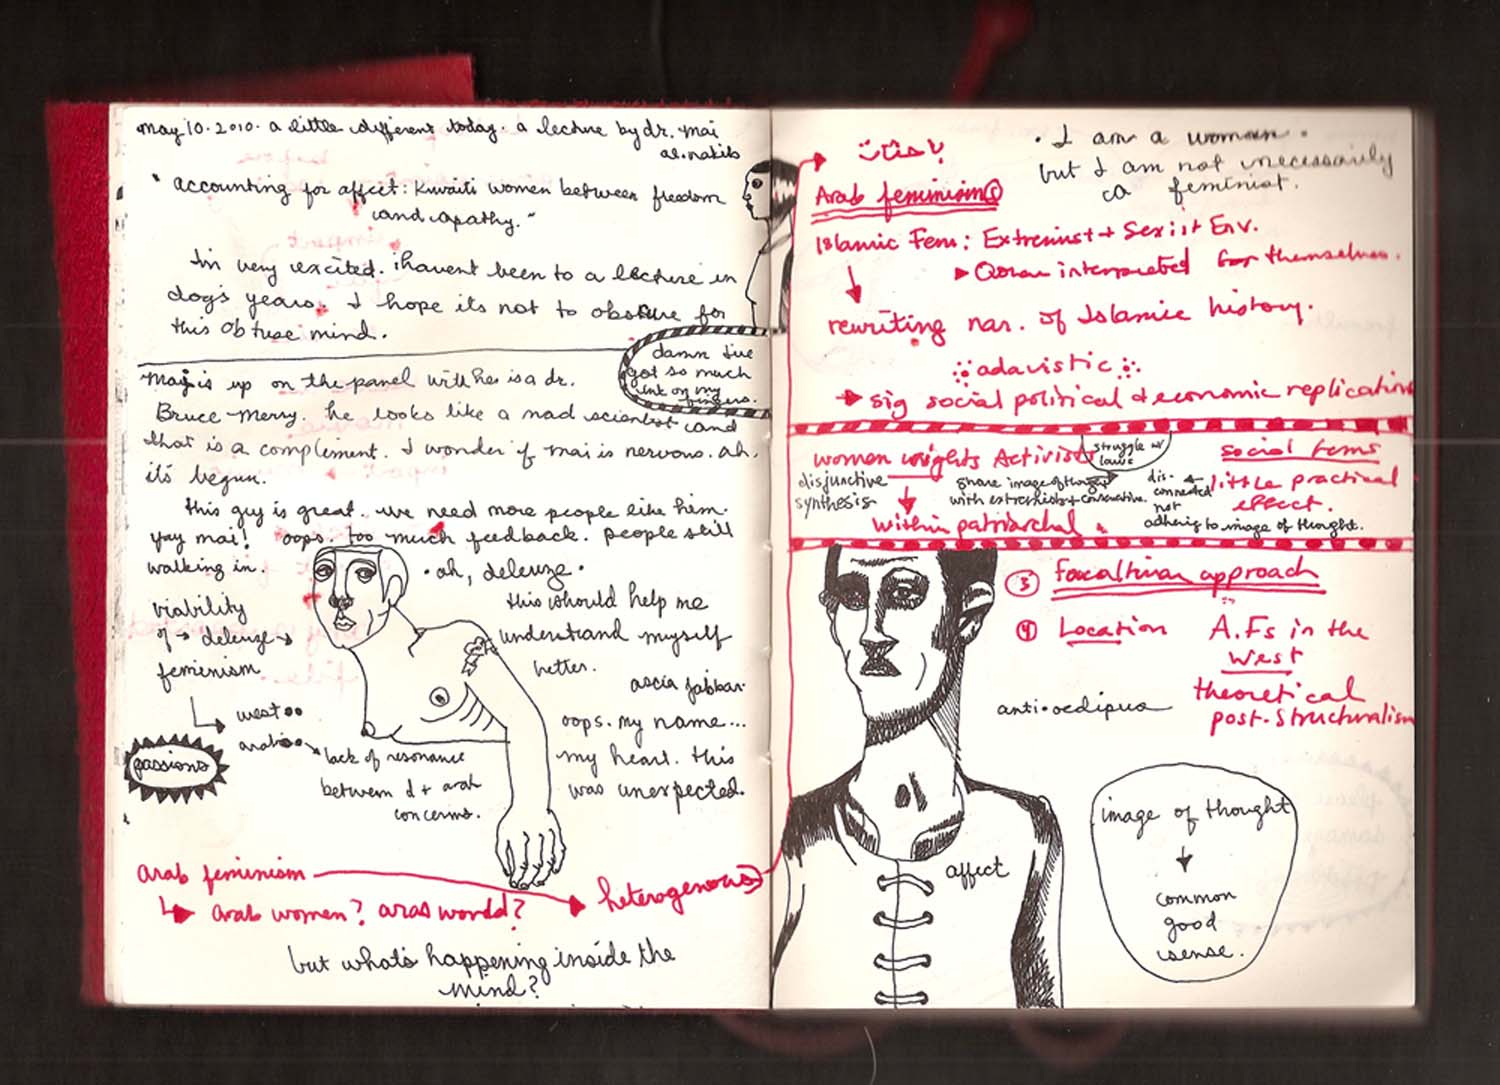 may 10. 2010. a little different today. a lecture by dr. mai
al.nakib
"accounting for affect: kuwaiti women between freedom
and apathy."
Im very excited. i havent been to a lecture in
dogs years. I hope its not to obscure for
this obtuse mind.
damn I've
got so much
ink on my
fingers.
mai is up on the panel with her is a dr.
Bruce merry. he looks like a mad scientist and
that is a compliment. I wonder if mai is nervous. ah,
it's begun.
this guy is great. we need more people like him.
yay mai! oops. too much feedback. people still
walking in.
• ah, deleuze •
this should help me
understand myself
better.
ascia jabbar.
oops. my name...
my heart. this
was unexpected.
viability
of → deleuze →
feminism
west
arab
passions
lack of resonance
between d + arab
concerns.
arab feminism
heterogenous
arab women? arab world?
but what's happening inside the
mind?
• I am a woman •
but I am not necessarily
a feminist.
Arab feminism(s)
Islamic Fem: Extremist + Sexist Env.
Quran interpreted for themselves.
rewriting nar. of Islamic history.
adavistic
sig social political & economic replication
women wrights Activists
struggle w/
laws
social fems
disjunctive
synthesis
share image of thought
with extremist + conservative.
dis-
connected
not
adhering to image of thought.
little practical
effect.
within patriarchal
③ foucaltian approach
④ Location
A.Fs in the
west
theoretical
post-structuralism
anti.oedipus
affect
image of thought
common
good
sense.